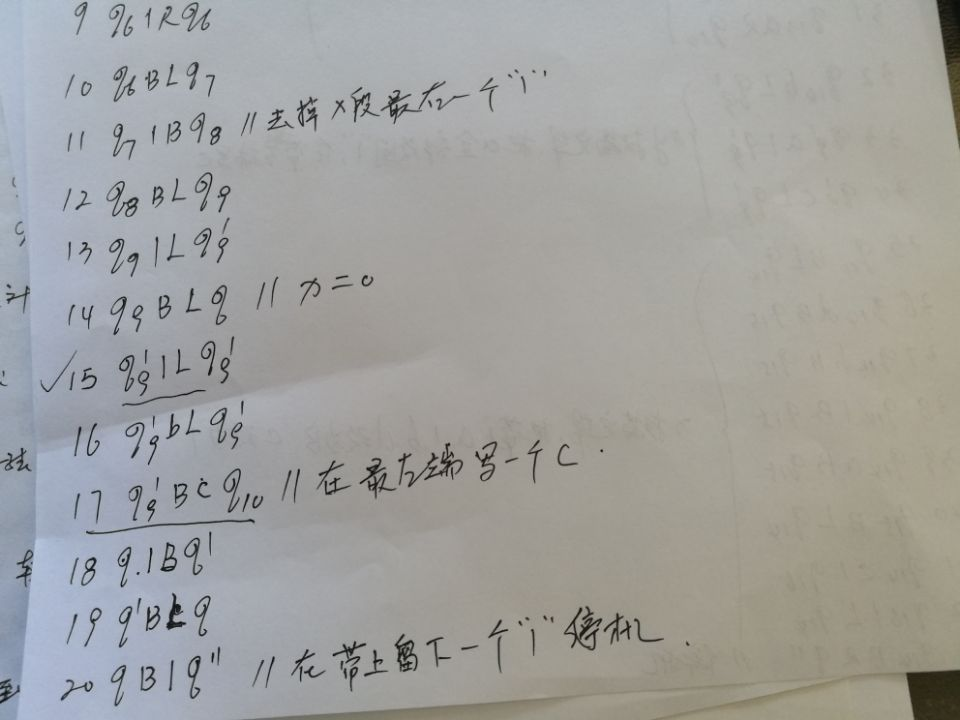 9 q₆ 1 R q₆
10 q₆ B L q₇
11 q₇ 1 B q₈ // 去掉 x 段最右一个"1"
12 q₈ B L q₉
13 q₉ 1 L q₉'
14 q₉ B L q // x = 0
✓15 q₉' 1 L q₉'
16 q₉' b L q₉'
17 q₉' B C q₁₀ // 在最左端写一个C.
18 q. 1 B q'
19 q' B L q
20 q B 1 q'' // 在带上留下一个"1"停机.